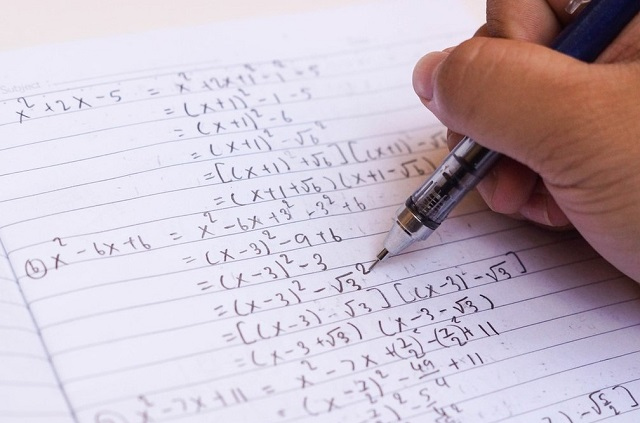 Subject
x² + 2x - 5 = x² + 2x + 1² - 1² - 5
= (x+1)² - 1 - 5
= (x+1)² - 6
= (x+1)² - √6²
= [(x+1) + √6] [(x+1) - √
= (x+1+√6) (x+1-√6)
(b) x² - 6x + 6 = x² - 6x + 3² - 3² + 6
= (x-3)² - 9 + 6
= (x-3)² - 3
= (x-3)² - √3²
= [(x-3) - √3] [(x-3) - √3]
= (x-3+√3) (x-3-√3)
x² - 7x + 11 = x² - 7x + (7/2)² - (7/2)² + 11
= (x - 7/2)² - 49/4 + 11